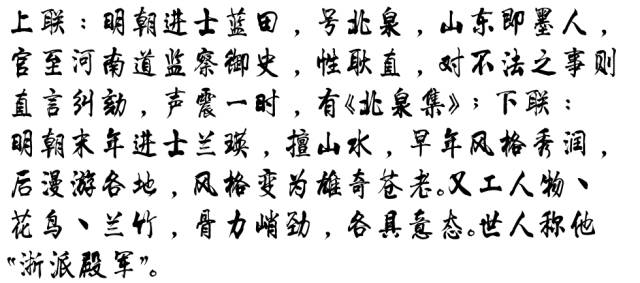 上联：明朝进士蓝田，号北泉，山东即墨人，
官至河南道监察御史，性耿直，对不法之事则
直言纠劾，声震一时，有《北泉集》；下联：
明朝末年进士兰瑛，擅山水，早年风格秀润，
后漫游各地，风格变为雄奇苍老。又工人物、
花鸟、兰竹，骨力峭劲，各具意态。世人称他
“浙派殿军”。